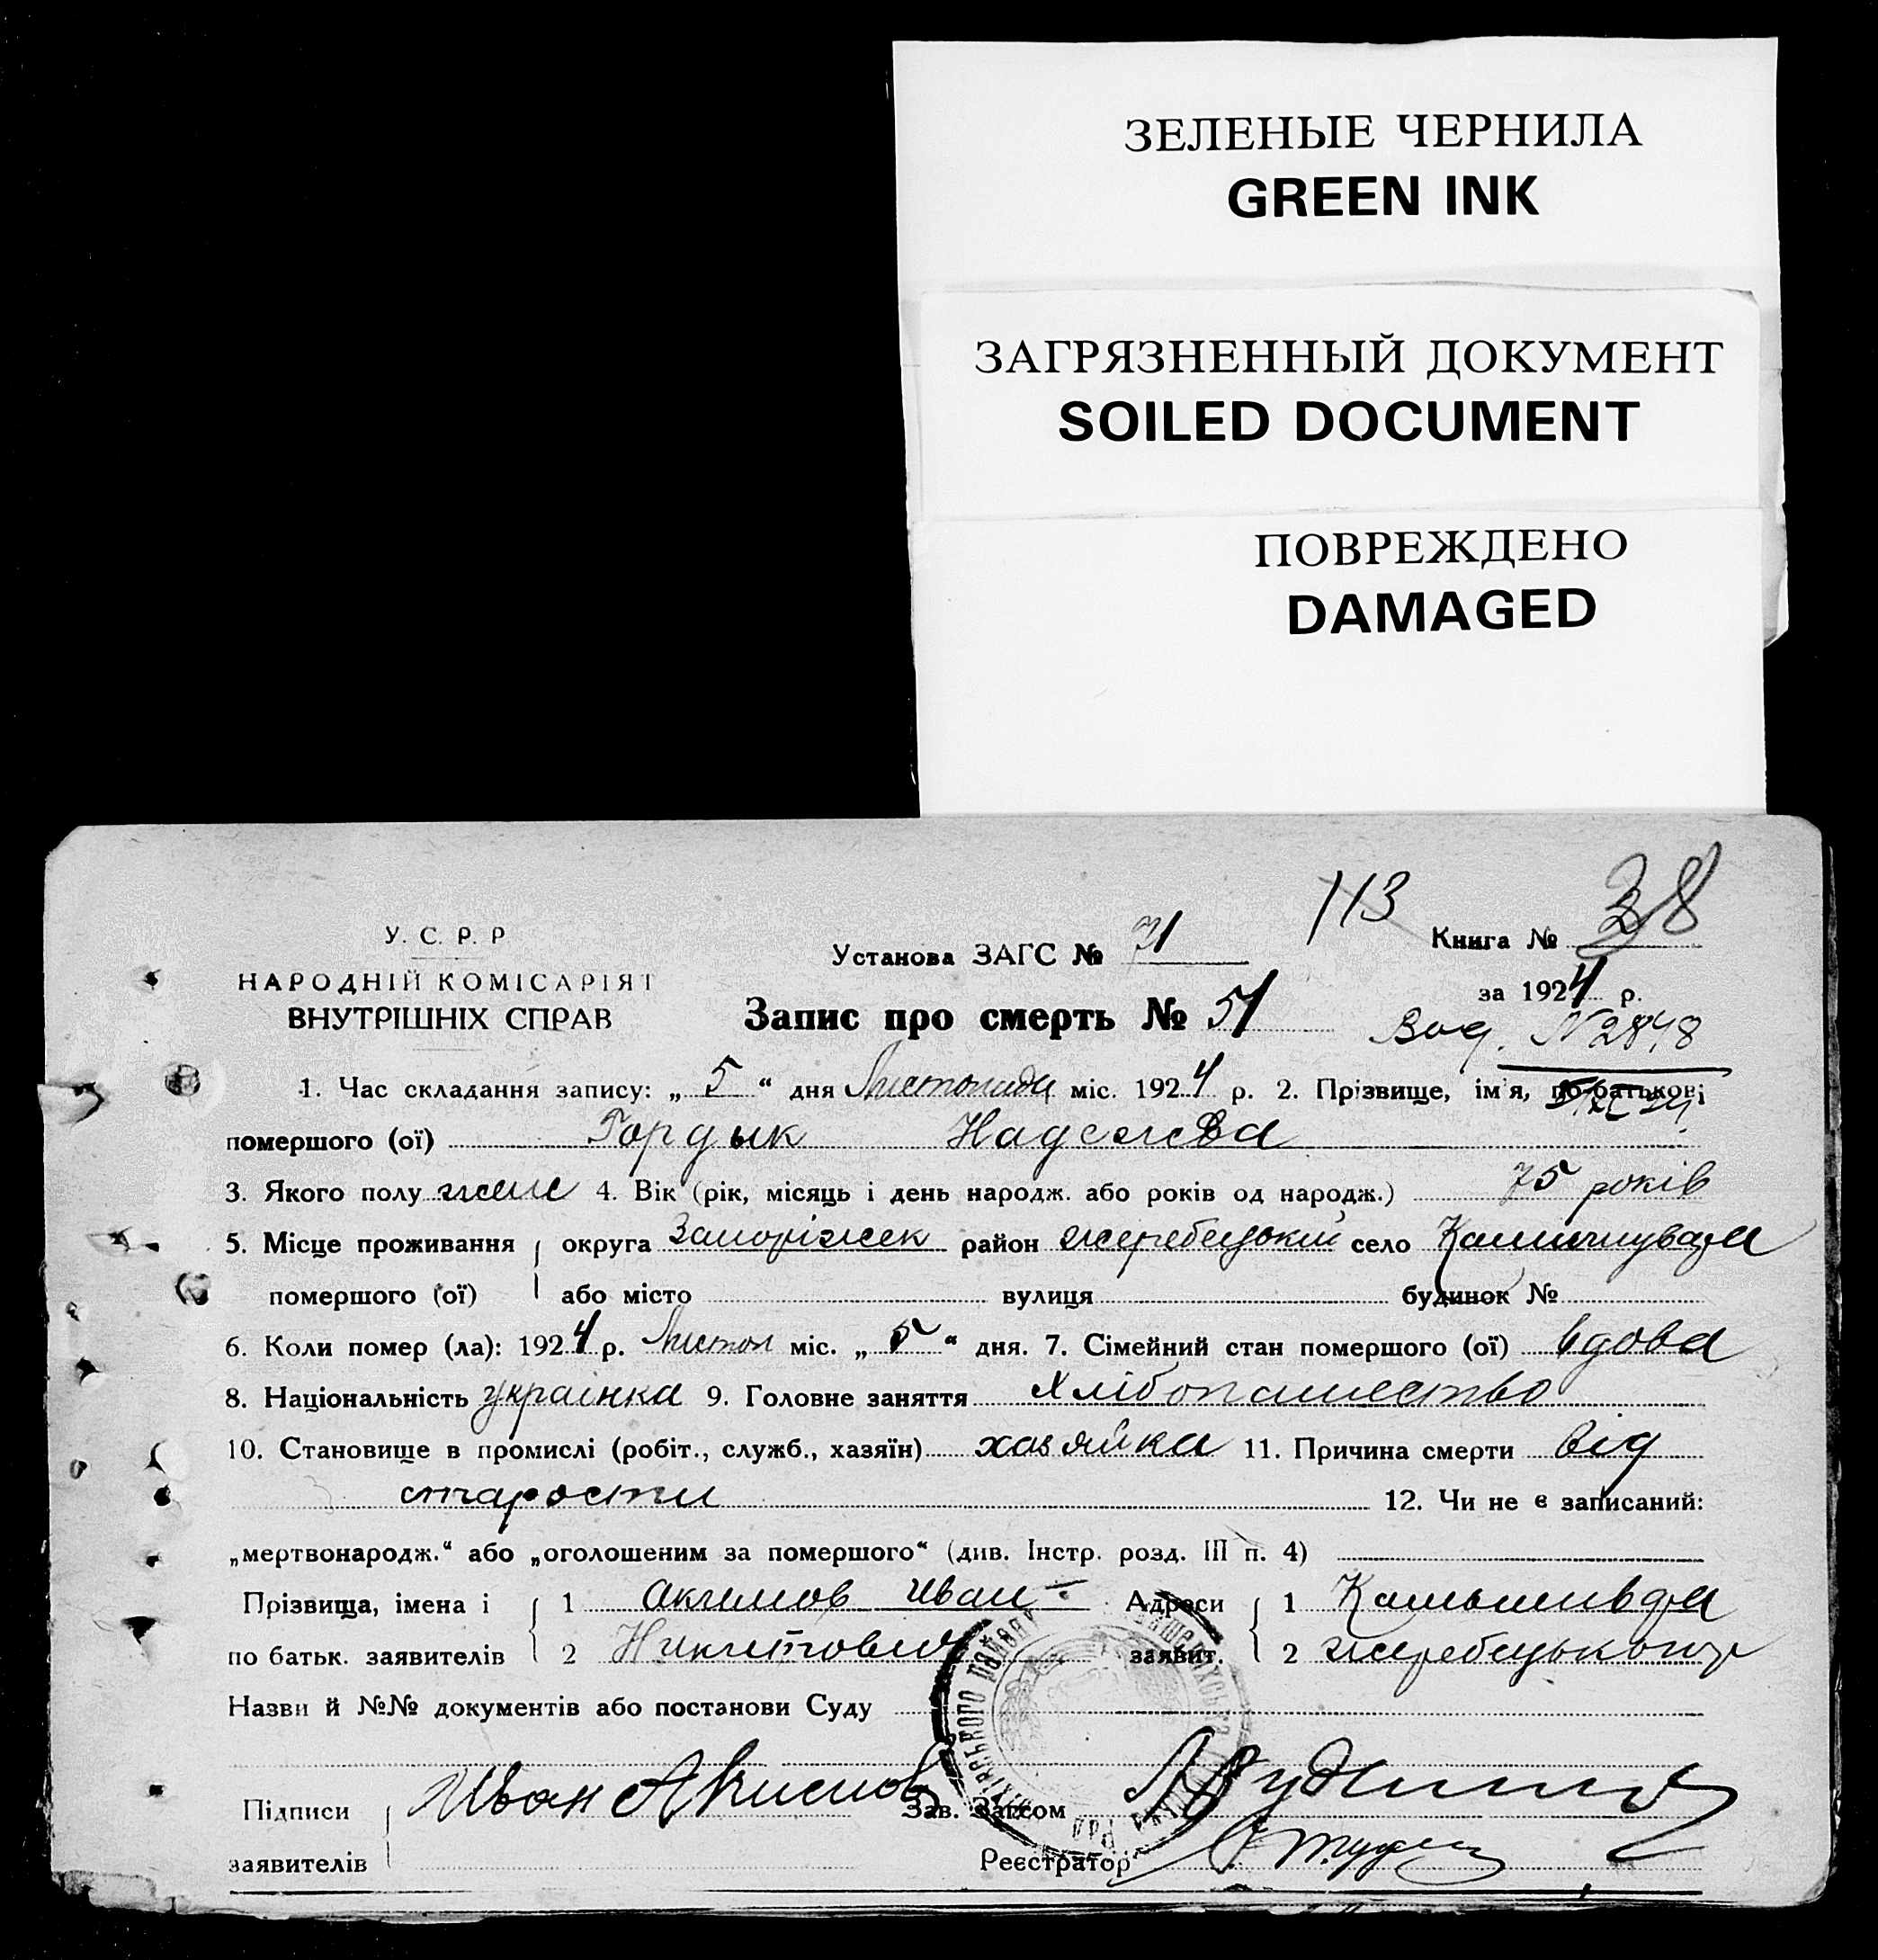 ЗЕЛЕНЫЕ ЧЕРНИЛА
GREEN INK
ЗАГРЯЗНЕННЫЙ ДОКУМЕНТ
SOILED DOCUMENT
ПОВРЕЖДЕНО
DAMAGED
113 38
У. С. Р. Р
Установа ЗАГС № 71 Книга №
НАРОДНІЙ КОМІСАРІЯТ
за 1924 р.
ВНУТРІШНІХ СПРАВ
Запис про смерть № 51
N 2848
1. Час складання запису: „ 5 “ дня Листопада міс. 1924 р. 2. Прізвище, ім'я, по батькові
помершого (ої) Гордык Надежда
3. Якого полу жен 4. Вік (рік, місяць і день народж. або років од народж.) 75 років
5. Місце проживання округа Запоріжск район Жеребецький село
помершого (ої) або місто вулиця будинок №
6. Коли помер (ла): 1924 р. Листоп міс. „ 5 “ дня. 7. Сімейний стан помершого (ої) вдова
8. Національність украінка 9. Головне заняття Хлібопашество
10. Становище в промислі (робіт., служб., хазяїн) хазяйка 11. Причина смерти від
старости 12. Чи не є записаний:
„мертвонародж.“ або „оголошеним за помершого“ (див. Інстр. розд. III п. 4)
Прізвища, імена і 1 Акимов Иван Адреси 1
по батьк. заявителів 2 Никитович заявит. 2 Жеребецького
Назви й №№ документів або постанови Суду
Підписи Иван Акимов Зав. Загсом
заявителів Реєстратор